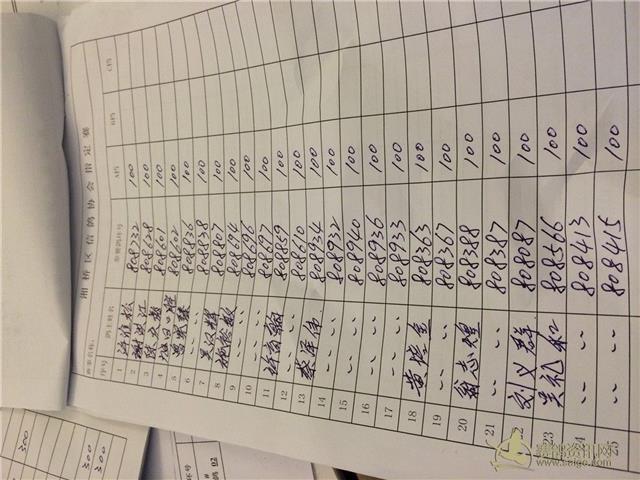 湘桥区信鸽协会指定赛
赛事名称：
序号 鸽主姓名 参赛鸽序号 A档 B档 C档
1 808732 100
2 808628 100
3 808601 100
4 808602 100
5 808836 100
6 〃 808838 100
7 吴汉辉 808807 100
8 808694 100
9 〃 808696 100
10 〃 808697 100
11 许百翱 808659 100
12 〃 808610 100
13 蔡泽伟 808934 100
14 〃 808932 100
15 〃 808940 100
16 〃 808936 100
17 〃 808933 100
18 808363 100
19 〃 808367 100
20 翁志煌 808388 100
21 〃 808387 100
22 刘义群 808087 100
23 吴礼和 808566 100
24 〃 808413 100
25 〃 808415 100
300
300 300
序号
# 02
赛鸽资讯网
www.saige.com